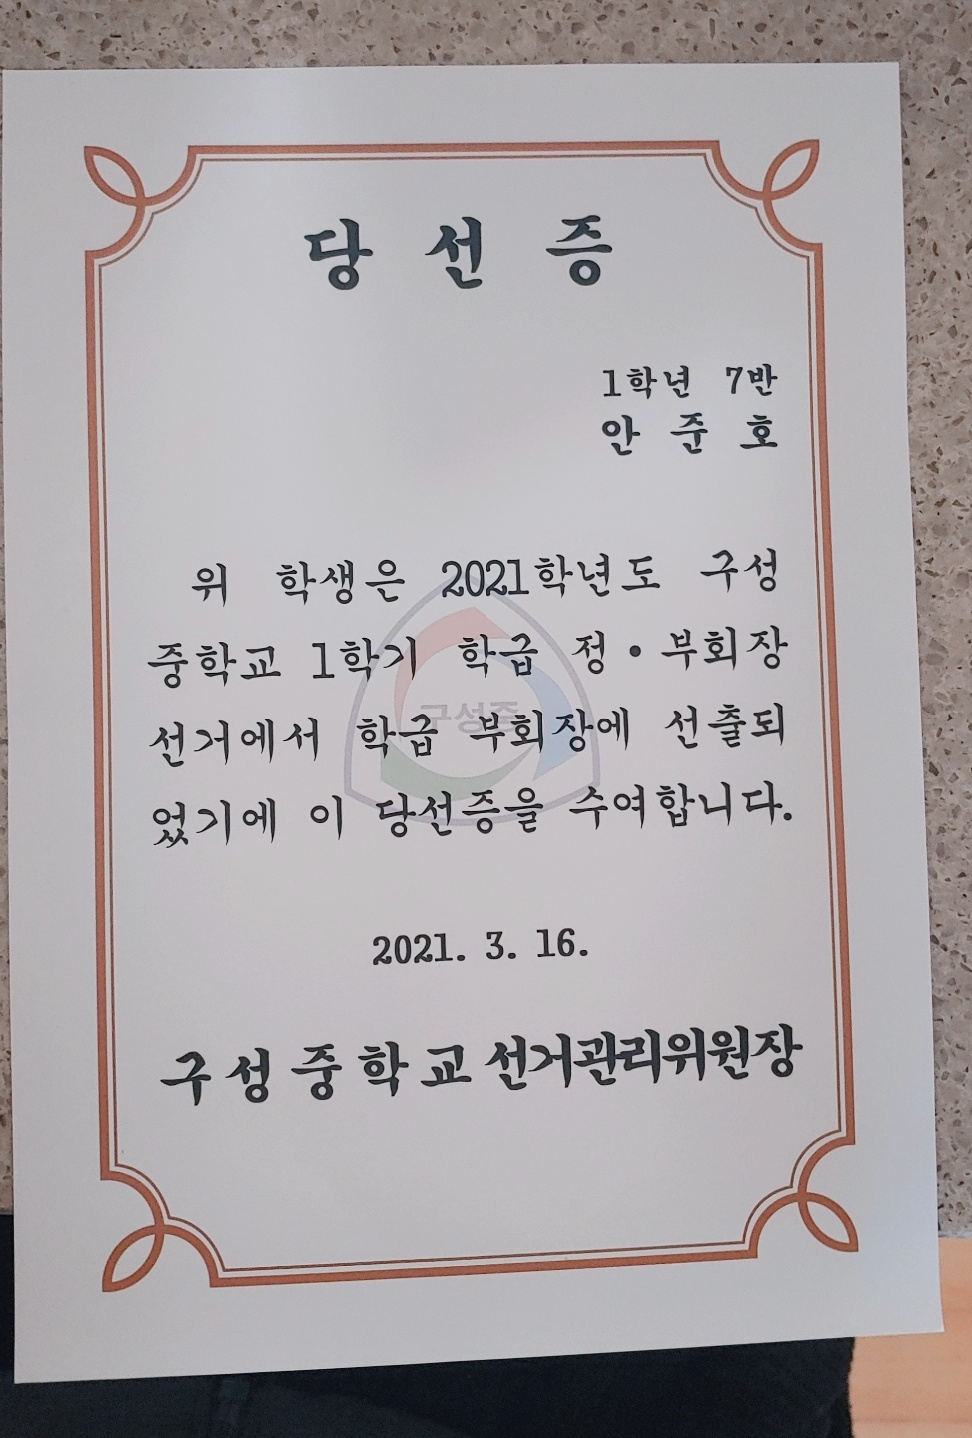 당 선 증
1학년 7반
안 준 호
위 학생은 2021학년도 구성
중학교 1학기 학급 정·부회장
선거에서 학급 부회장에 선출되
었기에 이 당선증을 수여합니다.
구성중
2021. 3. 16.
구 성 중 학 교 선거관리위원장